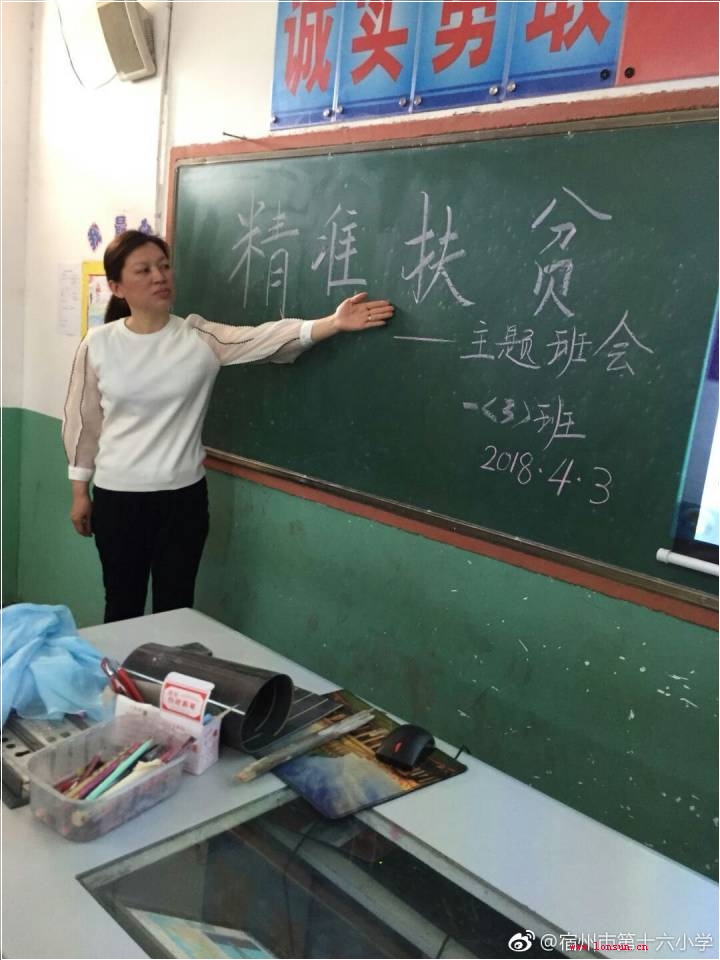 诚实勇敢
精准扶贫
——主题班会
一(3)班
2018.4.3
@宿州市第十六小学
www.lonsun.cn